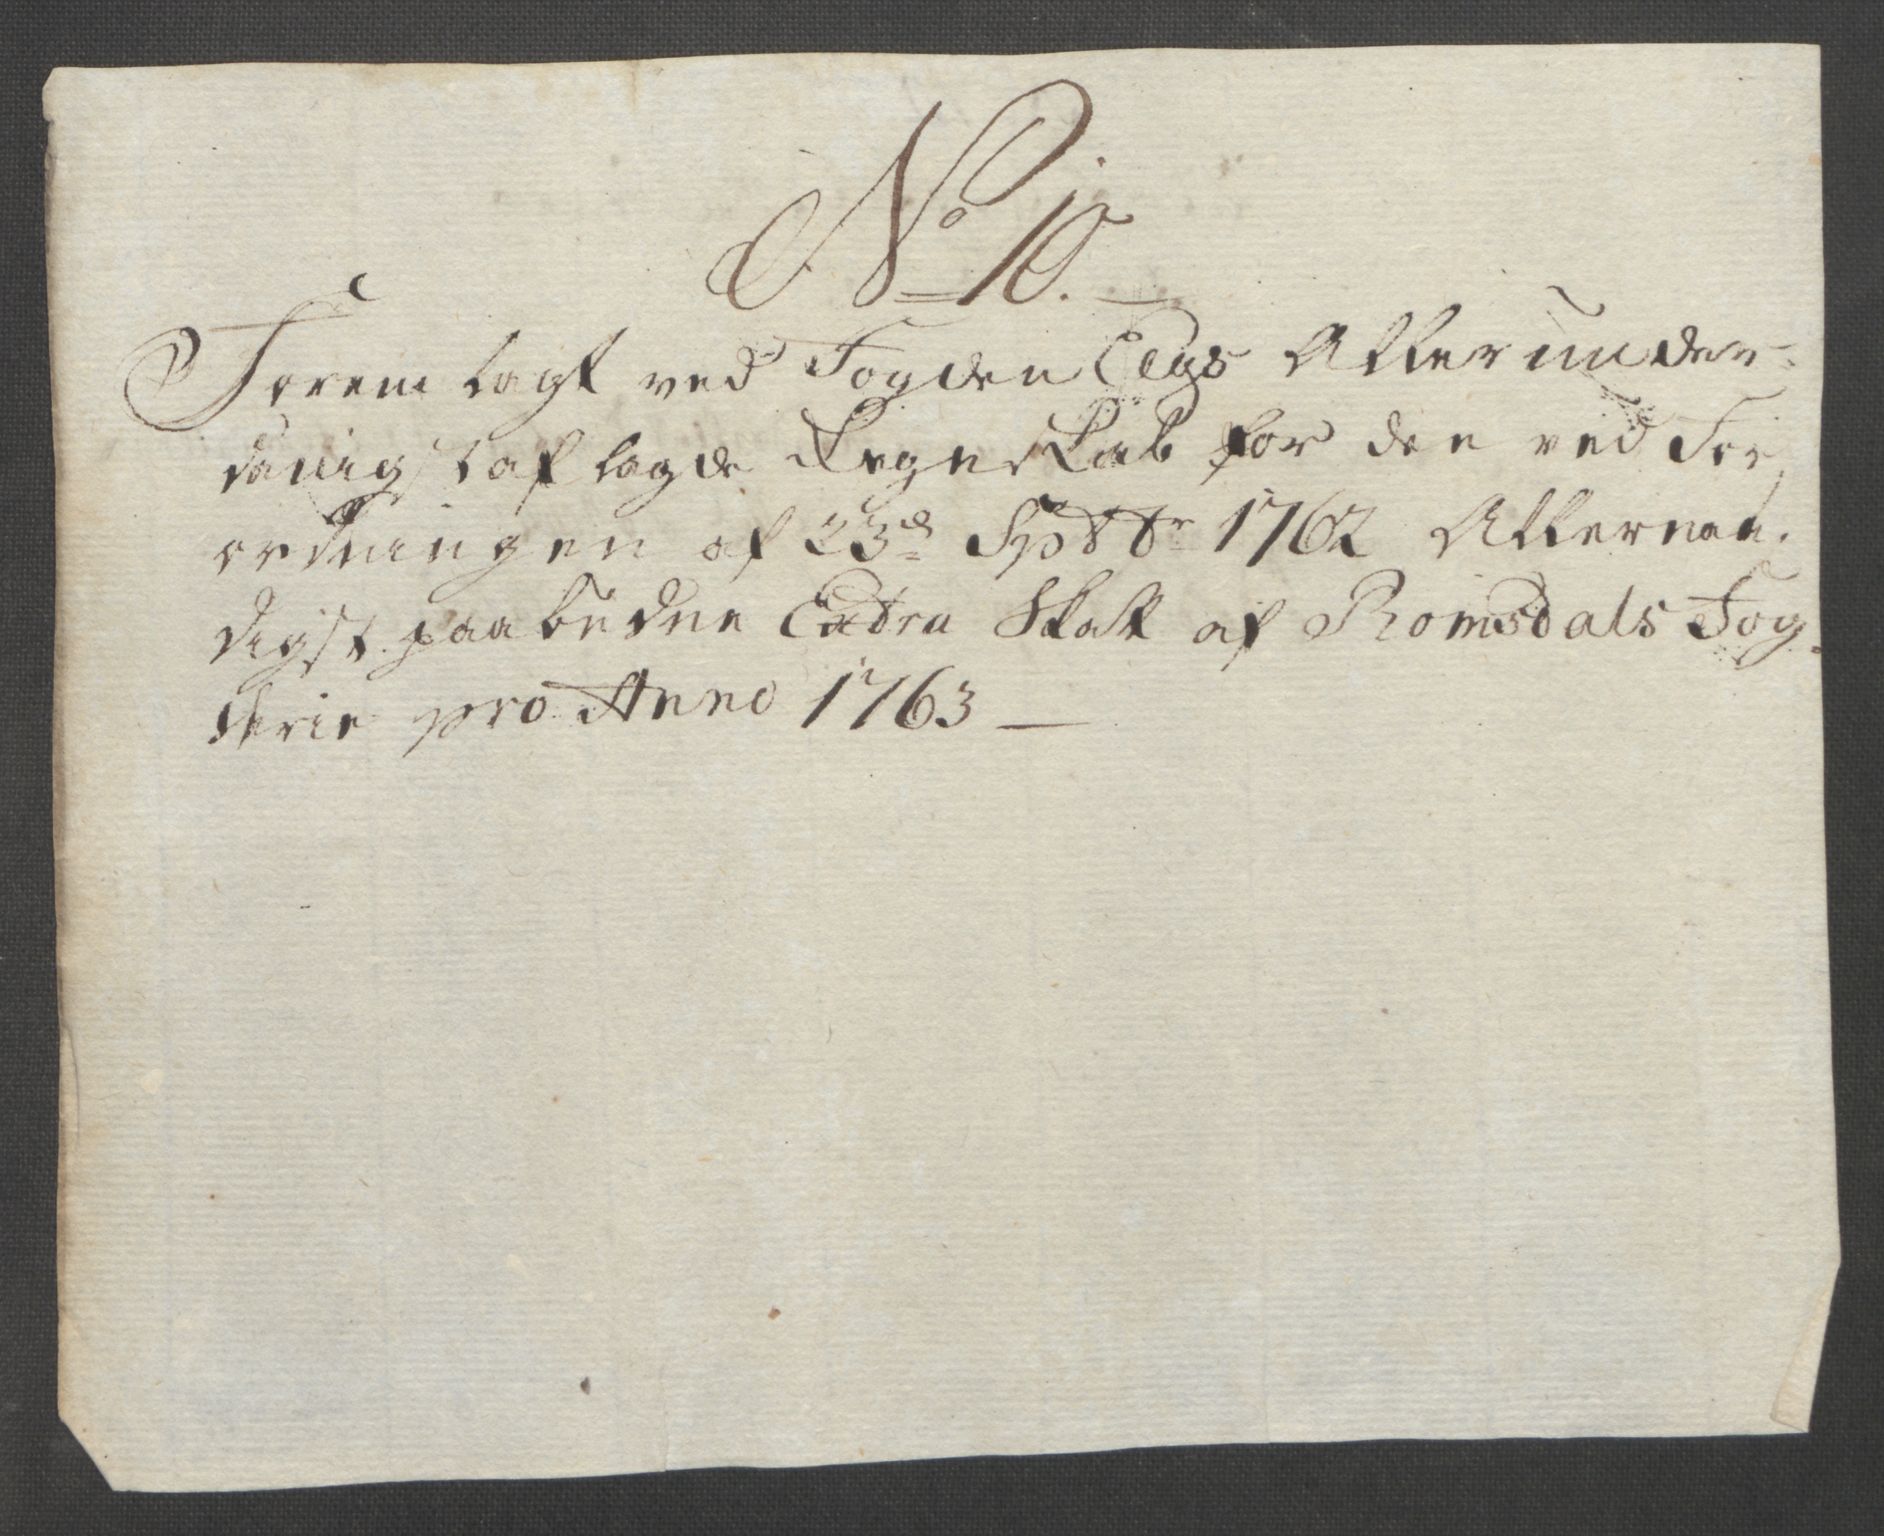 No 10.
Foremlagt ved Fogden Eegs Allerunder-
danigst aflagde Regnskab for den ved For
ordningen af 23d Sptbr 1762 Allernaa-
digst paabudne Extra Skatt af Romsdals Fog-
derie pro Anno 1763 —